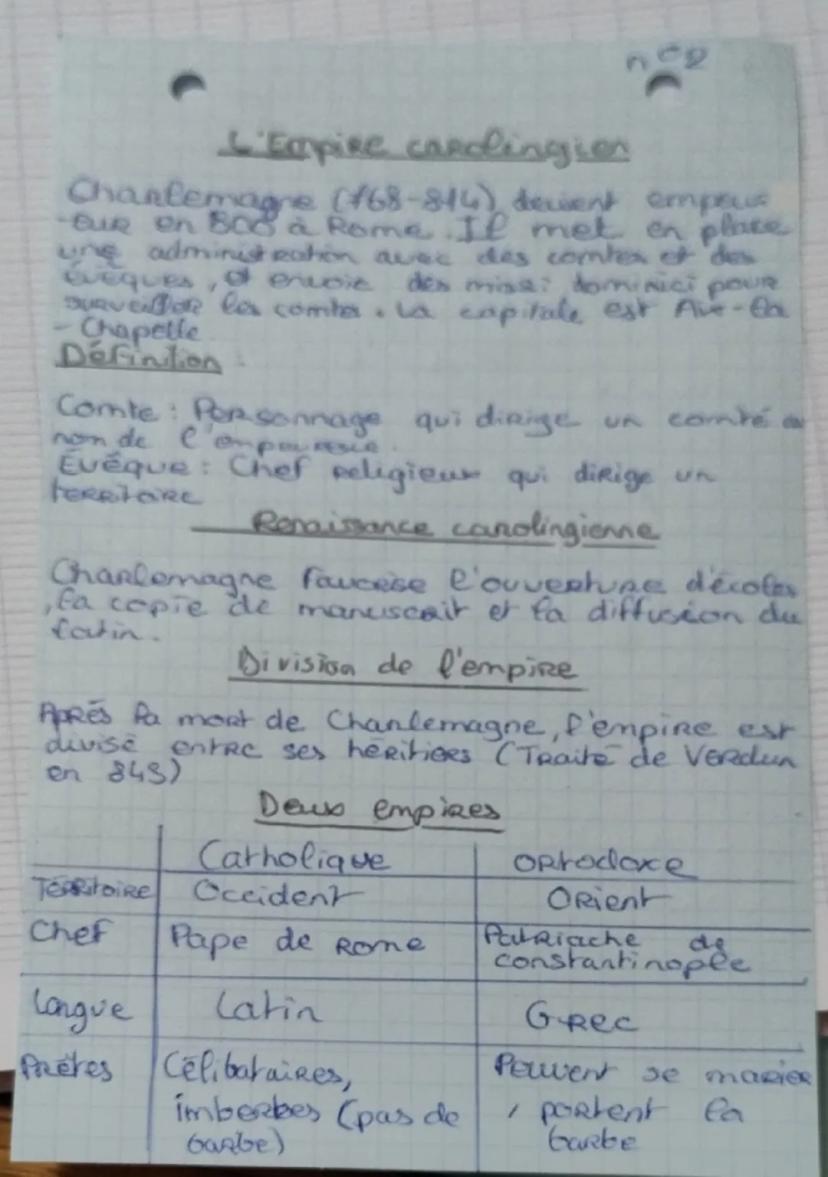 n°2
L'Empire carolingien
Charlemagne (768-814) devient empeur
-eur en 800 à Rome. Il met en place
une administration avec des comtes et des
évêques, et envoie des missi dominici pour
surveiller les comtes. La capitale est Aix-la
-Chapelle
Définition :
Comte : Personnage qui dirige un comté au
nom de l'empereur.
Évêque : Chef religieux qui dirige un
territoire
Renaissance carolingienne
Charlemagne favorise l'ouverture d'écoles
, la copie de manuscrit et la diffusion du
latin.
Division de l'empire
Après la mort de Charlemagne, l'empire est
divisé entre ses héritiers (Traité de Verdun
en 843)
Deux empires
Catholique ortodoxe
Térritoire Occident Orient
Chef Pape de Rome Patriache de
constantinople
Langue Latin Grec
Prêtres Célibataires, Peuvent se marier
imberbes (pas de , portent la
barbe) barbe